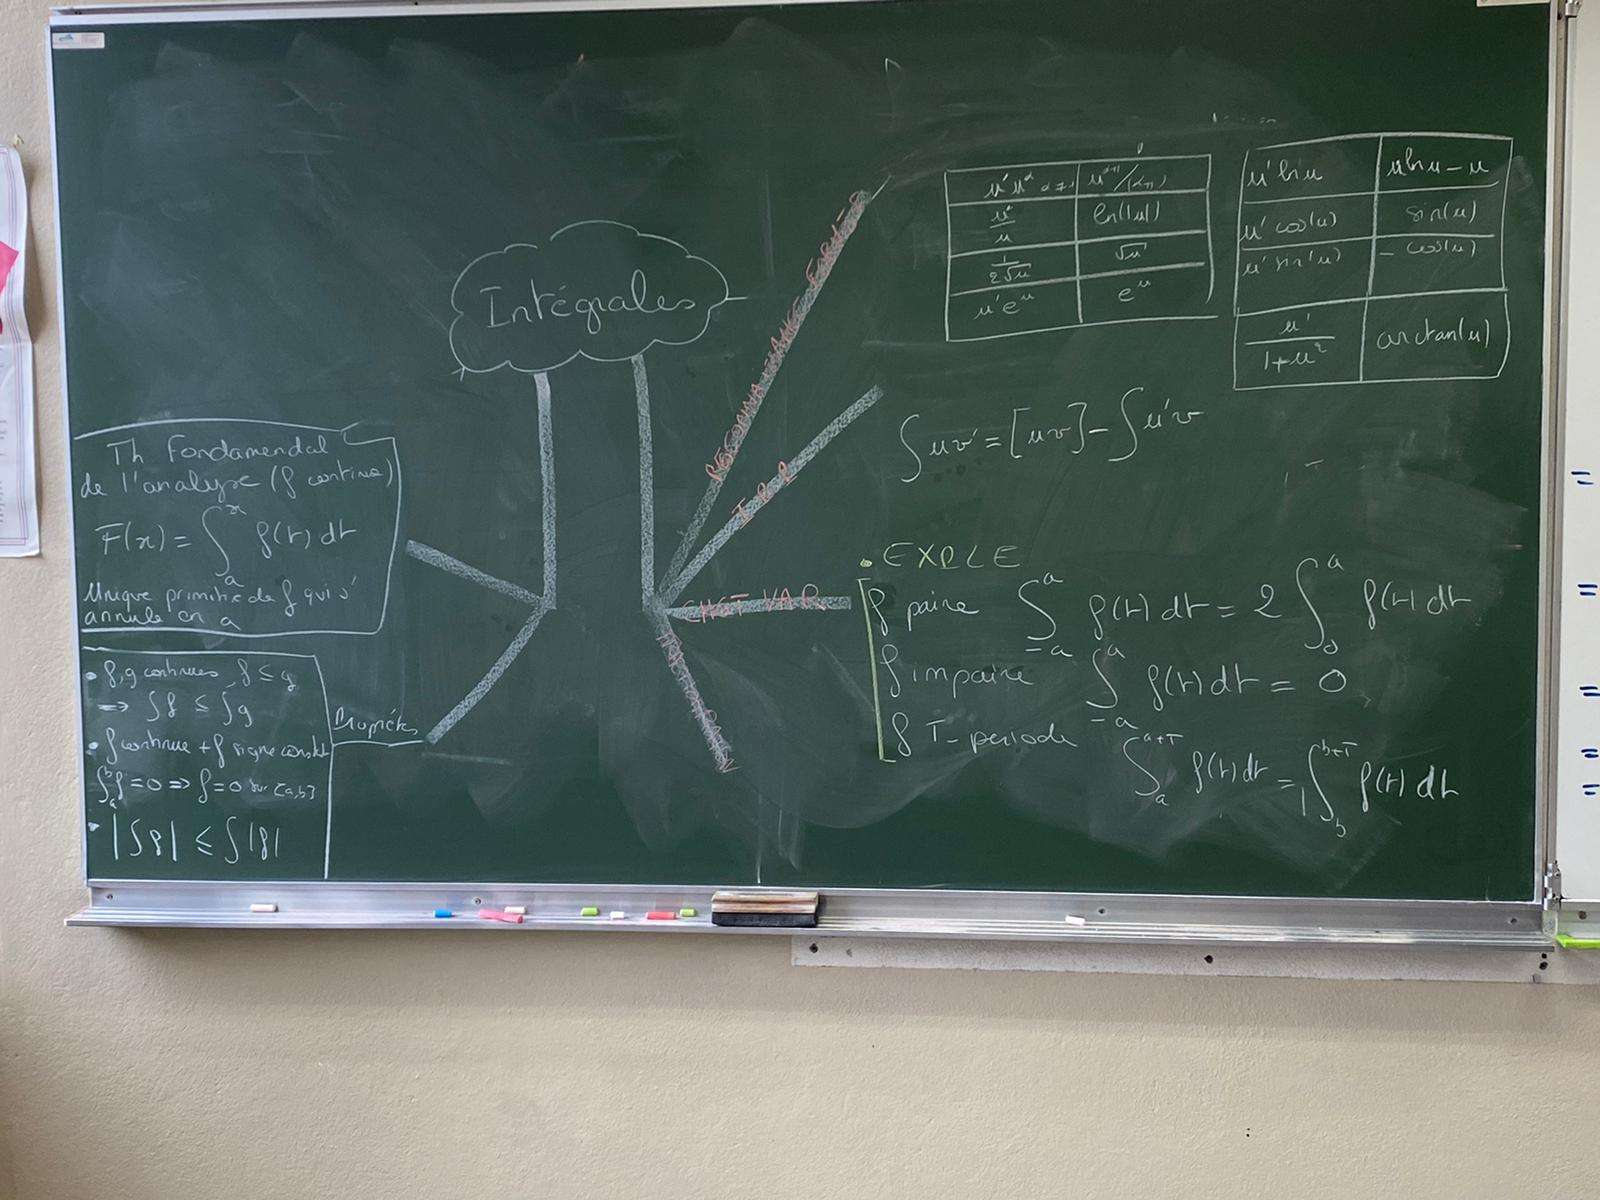 Intégrales
Th Fondamendal
de l'analyse (f continue)
F(x) = ∫_a^x f(t) dt
Unique primitive de f qui s'
annule en a
• f, g continues, f ≤ g
⇒ ∫f ≤ ∫g
• f continue + f signe constt
∫_a^b f = 0 ⇒ f = 0 sur [a,b]
• |∫f| ≤ ∫|f|
Propriétés
I.P.P
CHGT VAR
u'u^α α≠-1 | u^(α+1)/(α+1)
u'/u | ln(|u|)
1/(2√u) | √u
u'e^u | e^u
u' ln u | u ln u - u
u' cos(u) | sin(u)
u' sin(u) | - cos(u)
u'/(1+u²) | arctan(u)
∫uv' = [uv] - ∫u'v
• EXPLE
f paire ∫_{-a}^a f(t) dt = 2 ∫_0^a f(t) dt
f impaire ∫_{-a}^a f(t) dt = 0
f T-periode
∫_a^{a+T} f(t) dt = ∫_b^{b+T} f(t) dt